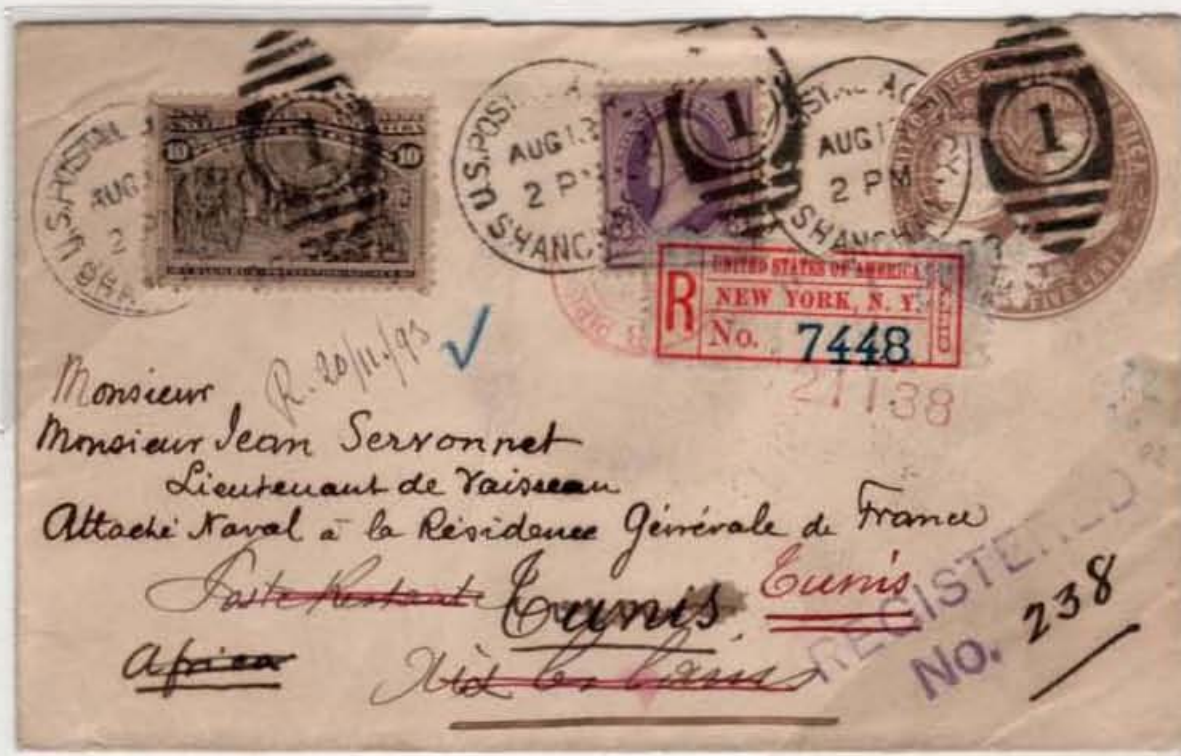 U.S. POSTAL
AUG
2
SHA
10 10
1
U.S. POSTAL A
AUG 13
2 PM
SHANG
1
POSTAL AG
AUG 1
2 PM
SHANGH
1
FIVE CENTS
R
UNITED STATES OF AMERICA
NEW YORK, N. Y.
No. 7448
21138
R. 20/11/93
Monsieur
Monsieur Jean Servonnet
Lieutenant de Vaisseau
Attaché Naval à la Résidence Générale de France
Poste Restante Tunis Tunis
Africa Aix les bains
REGISTERED
No. 238